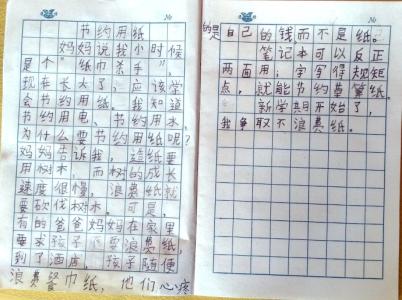 No
节约用纸
妈妈说我小时候
是个“纸巾杀手”，
现在长大了，应该学
会节约用纸。我知道
节约用电、节约用水，
为什么要节约用纸呢？
妈妈告诉我，造纸要
用树木，而树的成长
速度很慢，浪费纸就
要砍伐树木。可是，
有的爸爸妈妈在家里
要求孩子不要浪费纸，
到了酒店，孩子随便
浪费餐巾纸，他们心疼
No
的是自己的钱而不是纸。
笔记本可以反正
两面用，字写得规矩
点，就能节约费纸
新学期开始了，
我争取不浪费纸。